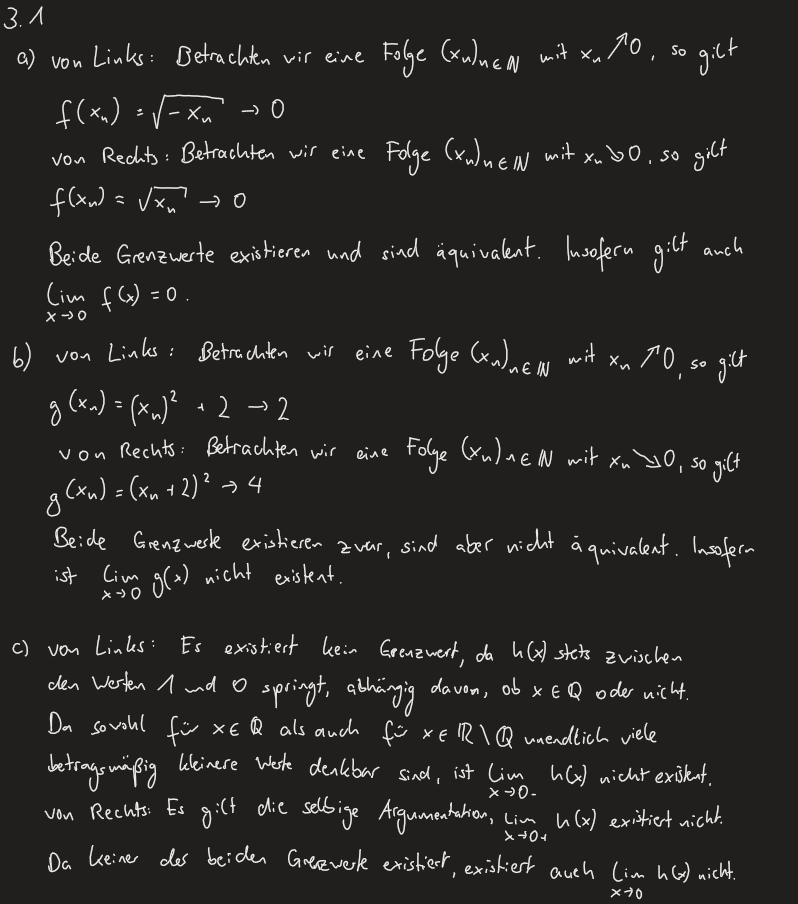 3.1
a) von Links: Betrachten wir eine Folge (xₙ)ₙ∈ℕ mit xₙ ↗ 0, so gilt
f(xₙ) = √(-xₙ) → 0
von Rechts: Betrachten wir eine Folge (xₙ)ₙ∈ℕ mit xₙ ↘ 0, so gilt
f(xₙ) = √(xₙ) → 0
Beide Grenzwerte existieren und sind äquivalent. Insofern gilt auch
lim x→0 f(x) = 0.
b) von Links: Betrachten wir eine Folge (xₙ)ₙ∈ℕ mit xₙ ↗ 0, so gilt
g(xₙ) = (xₙ)² + 2 → 2
von Rechts: Betrachten wir eine Folge (xₙ)ₙ∈ℕ mit xₙ ↘ 0, so gilt
g(xₙ) = (xₙ + 2)² → 4
Beide Grenzwerte existieren zwar, sind aber nicht äquivalent. Insofern
ist lim x→0 g(x) nicht existent.
c) von Links: Es existiert kein Grenzwert, da h(x) stets zwischen
den Werten 1 und 0 springt, abhängig davon, ob x ∈ ℚ oder nicht.
Da sowohl für x ∈ ℚ als auch für x ∈ ℝ \ ℚ unendlich viele
betragsmäßig kleinere Werte denkbar sind, ist lim x→0- h(x) nicht existent.
von Rechts: Es gilt die selbige Argumentation, lim x→0+ h(x) existiert nicht.
Da keiner der beiden Grenzwerte existiert, existiert auch lim x→0 h(x) nicht.